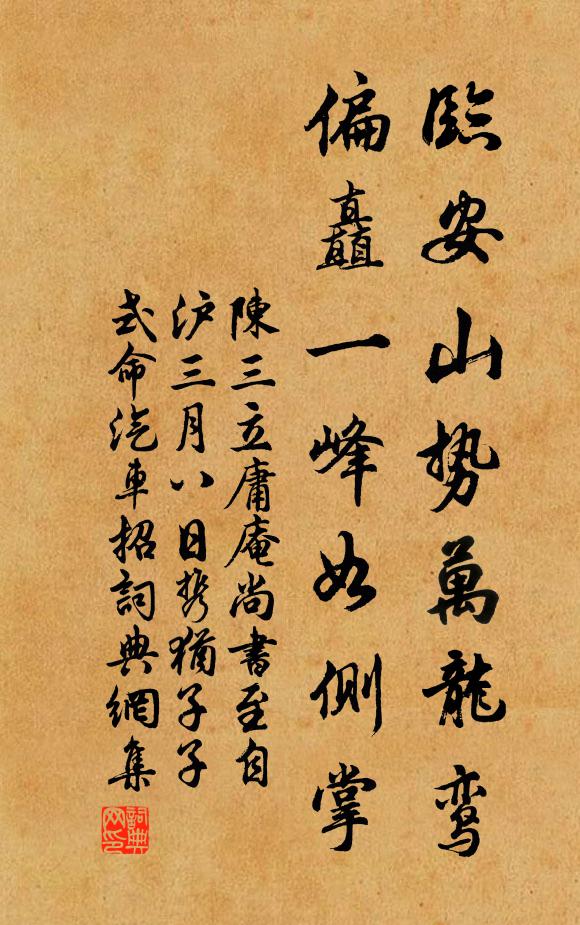 臨安山势萬龍鸾
偏矗一峰如側掌
陳三立庸庵尚書至自
沪三月八日携猶子子
式命汽車招詞典網集
詞典
网印